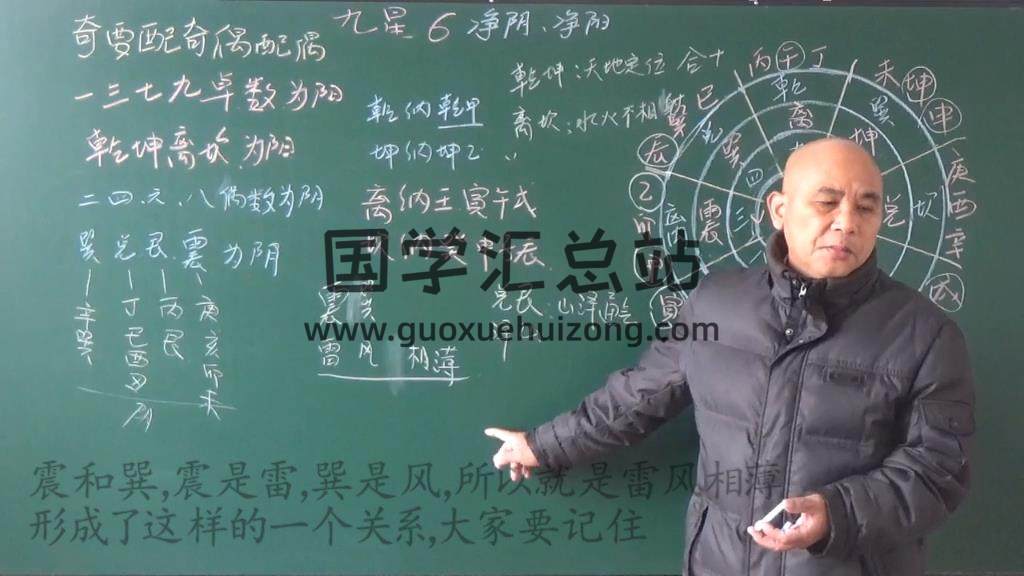 九星6 净阴、净阳
奇要配奇偶配偶
一三七九单数为阳
乾坤离坎为阳
二四六、八偶数为阴
巽兑艮震为阴
辛 丁 丙 庚
巽 巳 艮 亥
酉 卯
丑 未
阴
乾纳乾甲
坤纳坤乙
离纳壬寅午戌
申辰
震
雷风相薄
乾坤:天地定位 合十
离坎:水火不相
兑艮:山泽通
丙 午 丁
未 坤 申
庚 酉 辛
巳
辰
乙
寅
乾
离
巽
坤
兑
坎
震
四
三
国学汇总站
www.guoxuehuizong.com
震和巽,震是雷,巽是风,所以就是雷风相薄
形成了这样的一个关系,大家要记住